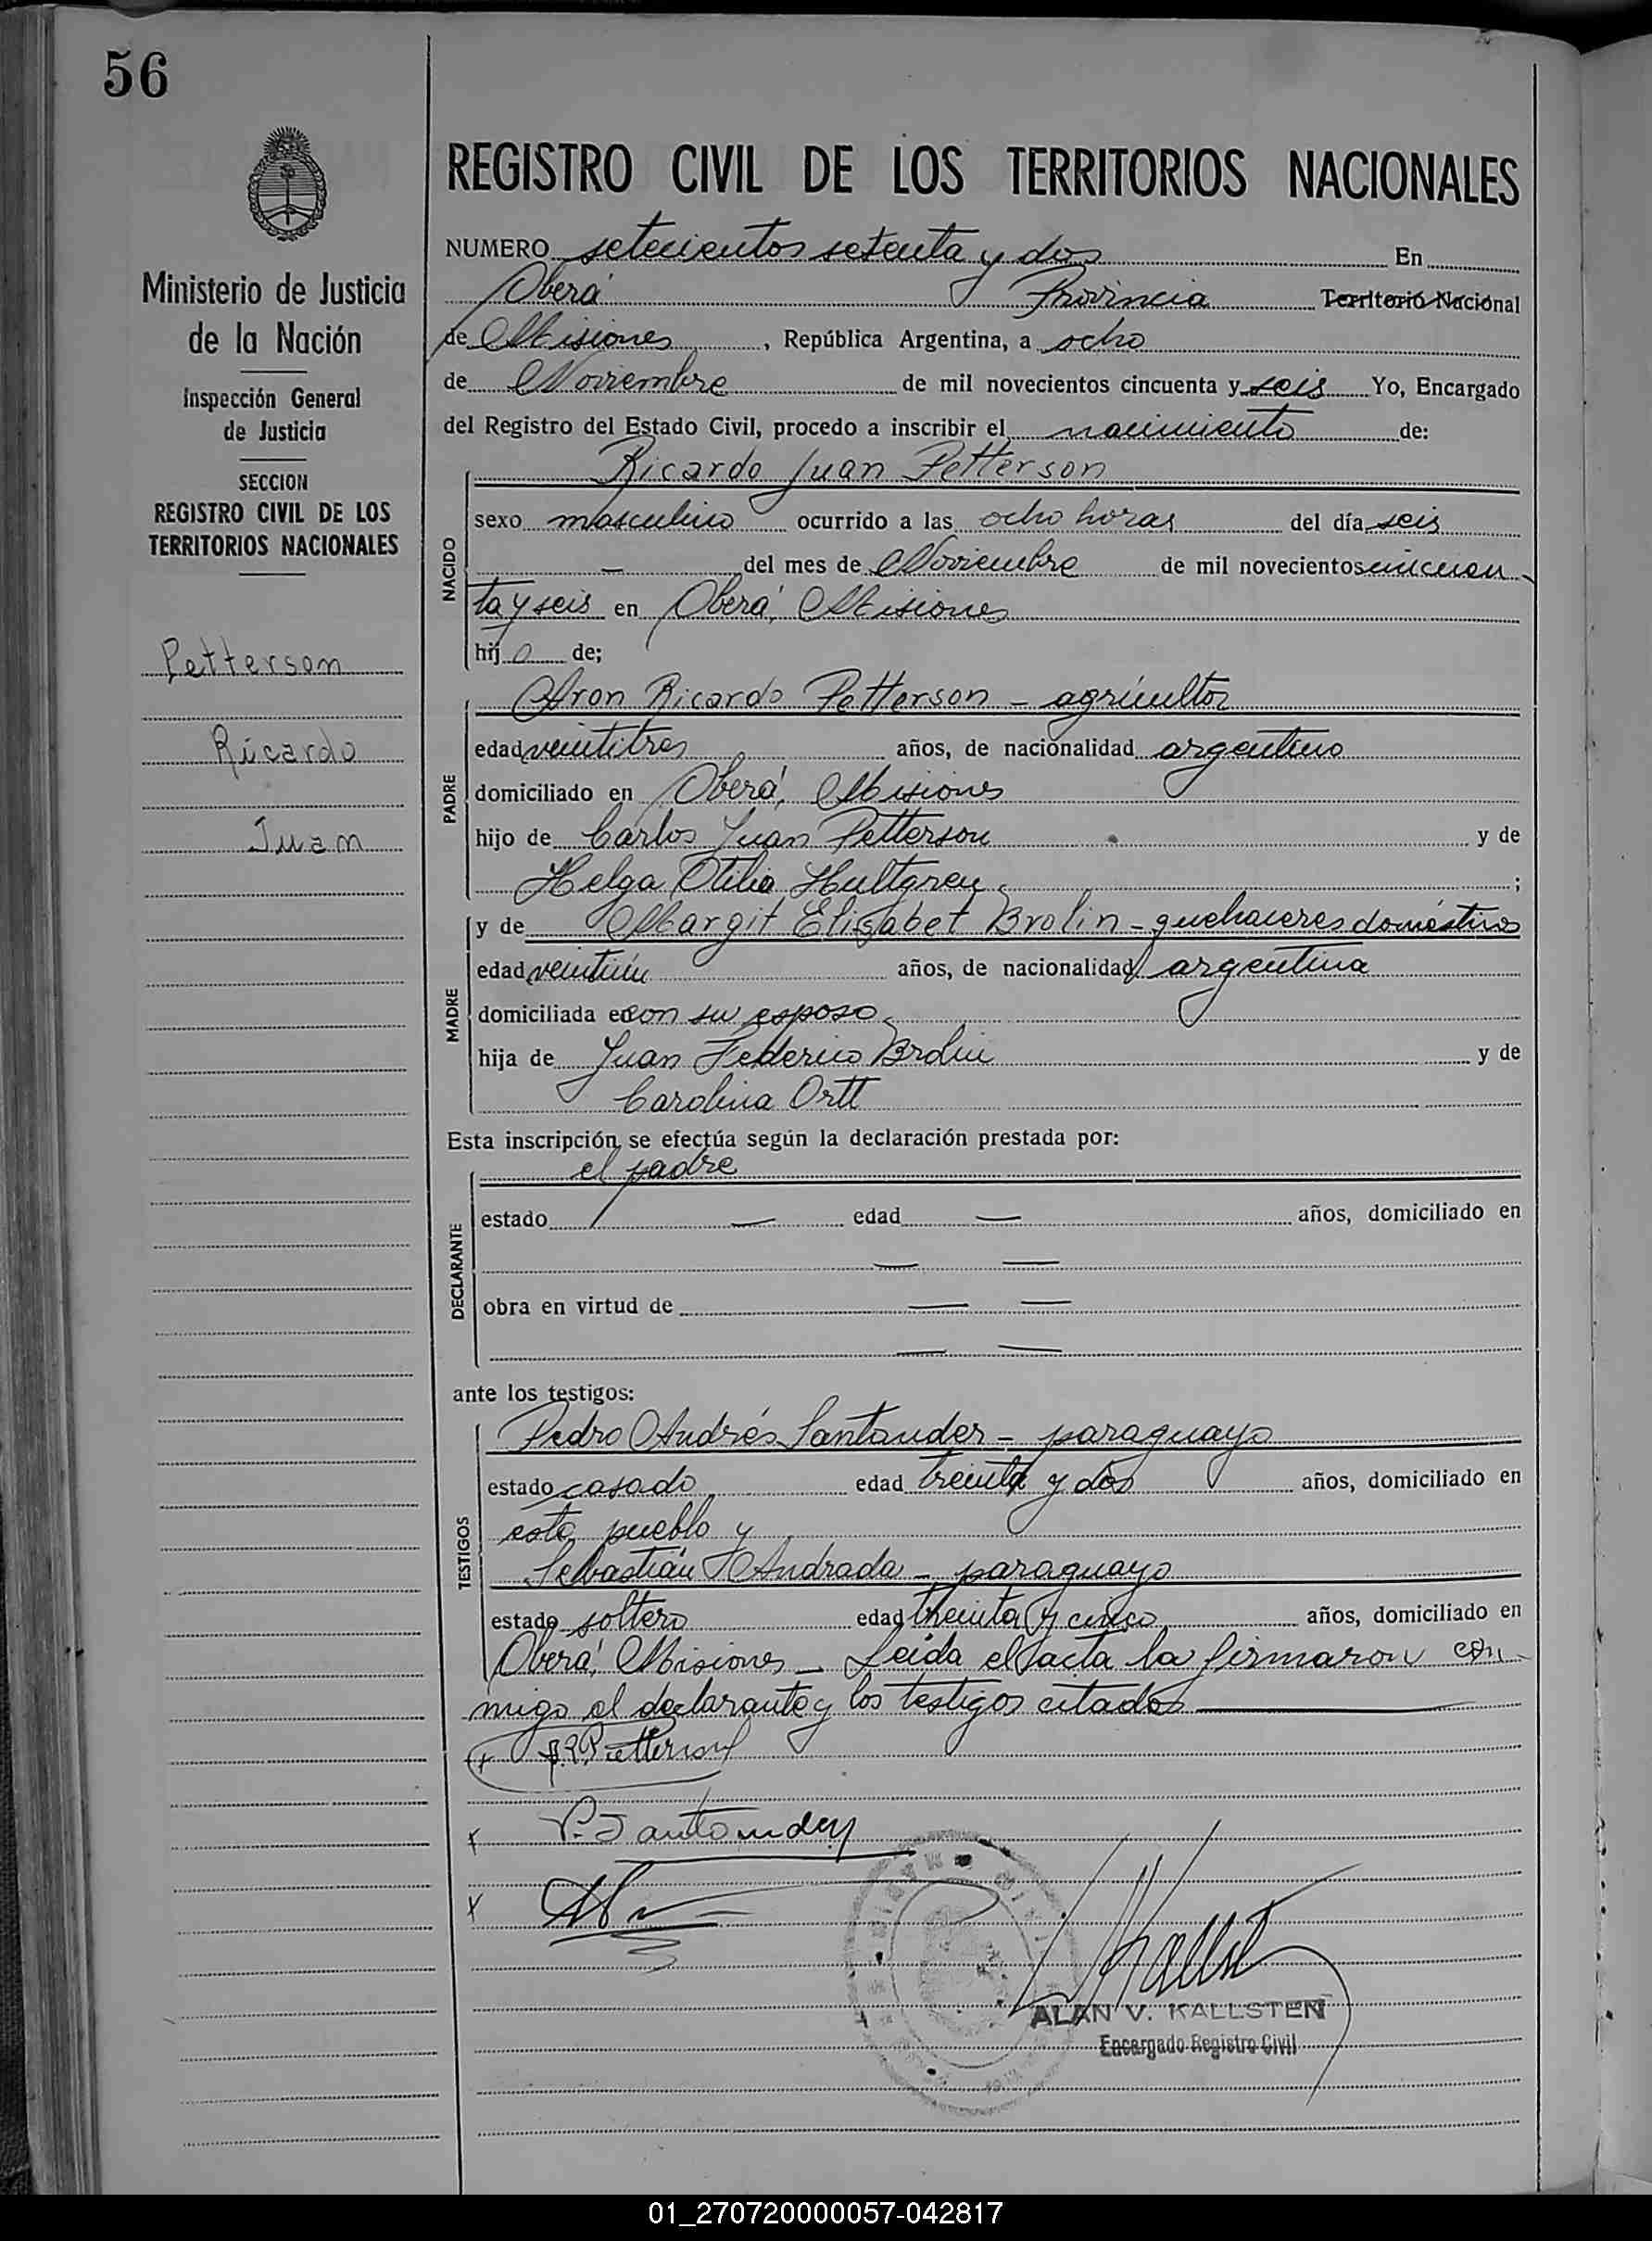 56
Ministerio de Justicia
de la Nación
Inspección General
de Justicia
SECCION
REGISTRO CIVIL DE LOS
TERRITORIOS NACIONALES
Petterson
Ricardo
Juan
REGISTRO CIVIL DE LOS TERRITORIOS NACIONALES
NUMERO setecientos setenta y dos En
Oberá Provincia Territorio Nacional
de Misiones, República Argentina, a ocho
de Noviembre de mil novecientos cincuenta y seis Yo, Encargado
del Registro del Estado Civil, procedo a inscribir el nacimiento de:
NACIDO
Ricardo Juan Petterson
sexo masculino ocurrido a las ocho horas del día seis
— del mes de Noviembre de mil novecientos cincuen-
ta y seis en Oberá, Misiones
hijo de;
PADRE
Aron Ricardo Petterson - agricultor
edad veintitres años, de nacionalidad argentino
domiciliado en Oberá, Misiones
hijo de Carlos Juan Petterson y de
Helga Otilia Hultgren ;
MADRE
y de Margit Elisabet Brolin - quehaceres domésticos
edad veintiún años, de nacionalidad argentina
domiciliada en con su esposo
hija de Juan Federico Brolin y de
Carolina Ortt
Esta inscripción se efectúa según la declaración prestada por:
DECLARANTE
el padre
estado — edad — años, domiciliado en
— —
obra en virtud de — —
— —
ante los testigos:
TESTIGOS
Pedro Andrés Santander - paraguayo
estado casado edad treinta y dos años, domiciliado en
este pueblo y
Sebastián Andrada - paraguayo
estado soltero edad treinta y cinco años, domiciliado en
Oberá, Misiones — Leída el acta la firmaron con-
migo el declarante y los testigos citados
x A.R. Petterson
x P. Santander
x
ALAN V. KALLSTEN
Encargado Registro Civil
01_270720000057-042817